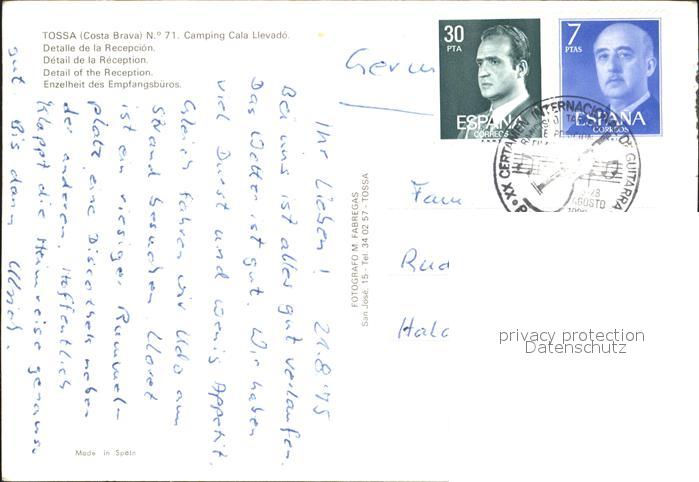 TOSSA (Costa Brava) N.º 71. Camping Cala Llevadó.
Detalle de la Recepción.
Détail de la Réception.
Detail of the Reception.
Enzelheit des Empfangsbüros.
Ihr Lieben! 21.8.75
Bei uns ist alles gut verlaufen.
Das Wetter ist gut. Wir haben
viel Durst und wenig Appetit.
Gleich fahren wir Udo am
Strand besuchen. Lloret
ist ein riesiger Rummel-
platz, eine Discothek neben
der anderen. Hoffentlich
klappt die Heimreise genauso
gut Bis dann Ullrich.
Made in Spain
FOTOGRAFO M. FABREGAS
San José, 15 - Tel. 34 02 57 - TOSSA
30
PTA
ESPAÑA
CORREOS
7
PTAS
ESPAÑA
CORREOS
XX CERTAMEN INTERNACIONAL DE GUITARRA
AGOSTO
Germ
Fam
Rud
Hald
privacy protection
Datenschutz